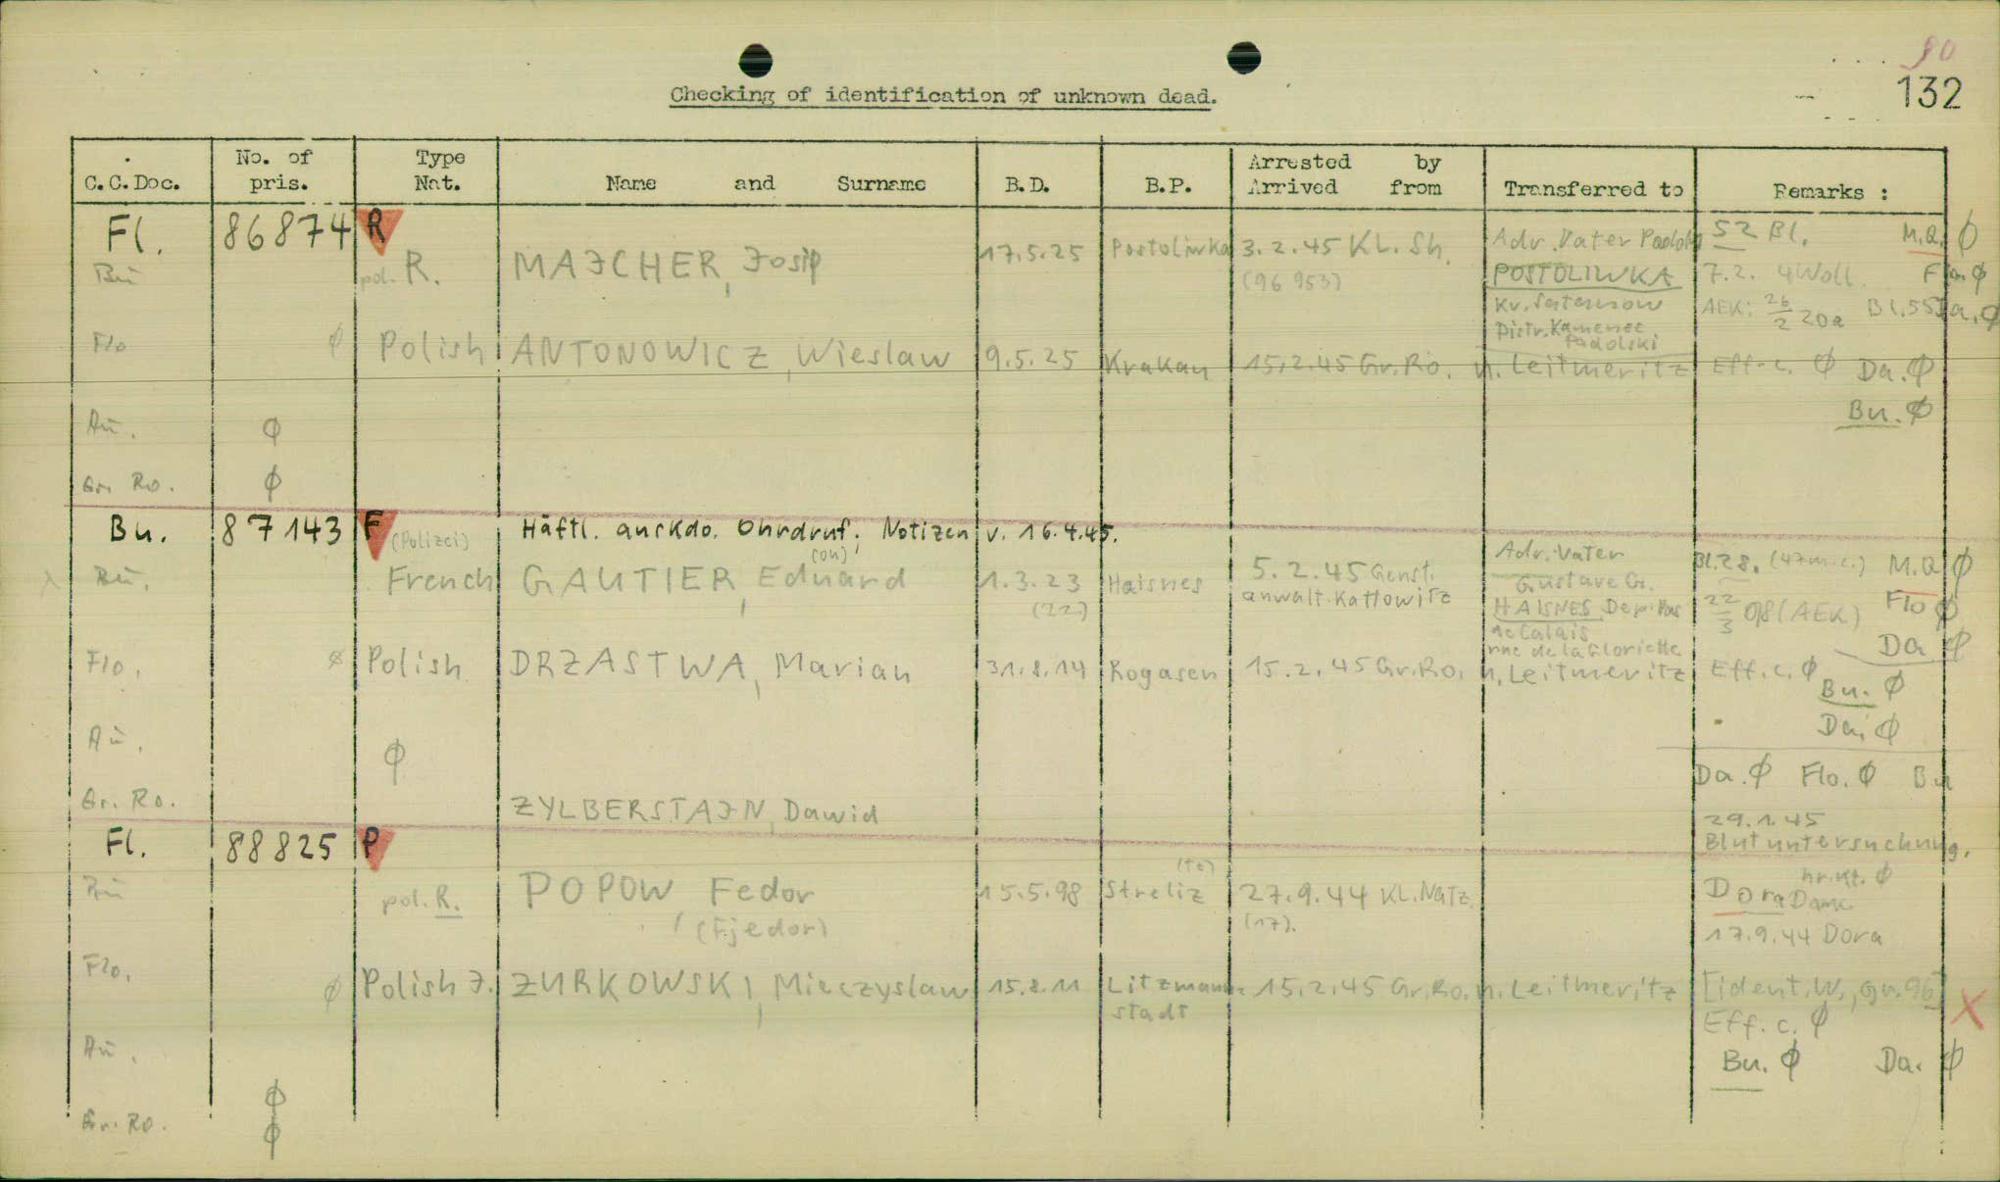 90
132
Checking of identification of unknown dead.
C.C.Doc. No. of pris. Type Nat. Name and Surname B.D. B.P. Arrested by Arrived from Transferred to Remarks :
Fl. 86874 R 52 Bl. M.Q. ϕ
Bu pol. R. MAJCHER, Josip 17.5.25 Postoliwka 3.2.45 KL. Sh. (96 953) Adr. Vater
POSTOLIWKA 7.2. 4 Woll. Flo. ϕ
Kv. AEK: 26/2 20a Bl. 55 Da. ϕ
Distr. Kamenec Padolski
Flo ϕ Polish ANTONOWICZ, Wieslaw 9.5.25 Krakau 15.2.45 Gr. Ro. n. Leitmeritz Eff. c. ϕ Da. ϕ
Bu. ϕ
Au. ϕ
Gr. Ro. ϕ
Bu. 87143 F (Polizei) Häftl. auskdo. Ohrdruf; Notizen v. 16.4.45.
Bu. French GAUTIER, Eduard (ou) 1.3.23 (22) Haisnes 5.2.45 Genst. anwalt. Kattowitz Adr. Vater Bl. 28. M.Q. ϕ
Gustave G. 22/3 98 (AEK) Flo ϕ
HAISNES Dep. Pas de Calais Da ϕ
rue de la Gloriette
Flo. ϕ Polish DRZASTWA, Marian 31.8.14 Rogasen 15.2.45 Gr. Ro. n. Leitmeritz Eff. c. ϕ
Bu. ϕ
Da. ϕ
Au. ϕ
Da. ϕ Flo. ϕ Bu
Gr. Ro. ZYLBERSTAJN, Dawid
29.1.45
Blutuntersuchung.
Fl. 88825 P
hr. Kt. ϕ
Bu pol. R. POPOW, Fedor (Fjedor) 15.5.98 Streliz (te) 27.9.44 KL. Natz. (17). Dora
17.9.44 Dora
Flo. ϕ Polish J. ZURKOWSKI, Mieczyslaw 15.2.11 Litzmann- stadt 15.2.45 Gr. Ro. n. Leitmeritz [ident. W., gr. 96] X
Eff. c. ϕ
Au. ϕ Bu. ϕ Da. ϕ
Gr. Ro. ϕ